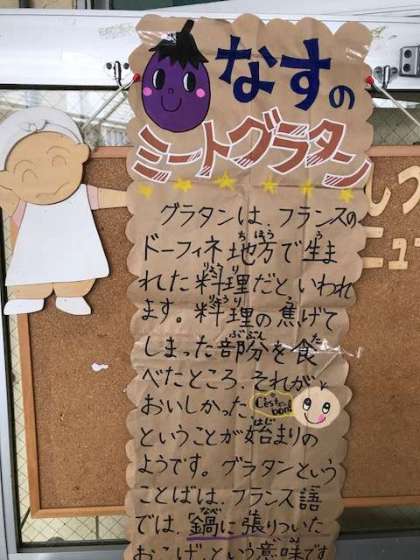 なすの
ミートグラタン
グラタンは、フランスの
ドーフィネ地方で生ま
れた料理だといわれ
ます。料理の焦げて
しまった部分を食
べたところ、それが
おいしかった
C'est bon!
ということが始まりの
ようです。グラタンという
ことばは、フランス語
では、「鍋に張りついた
おこげ」という意味です